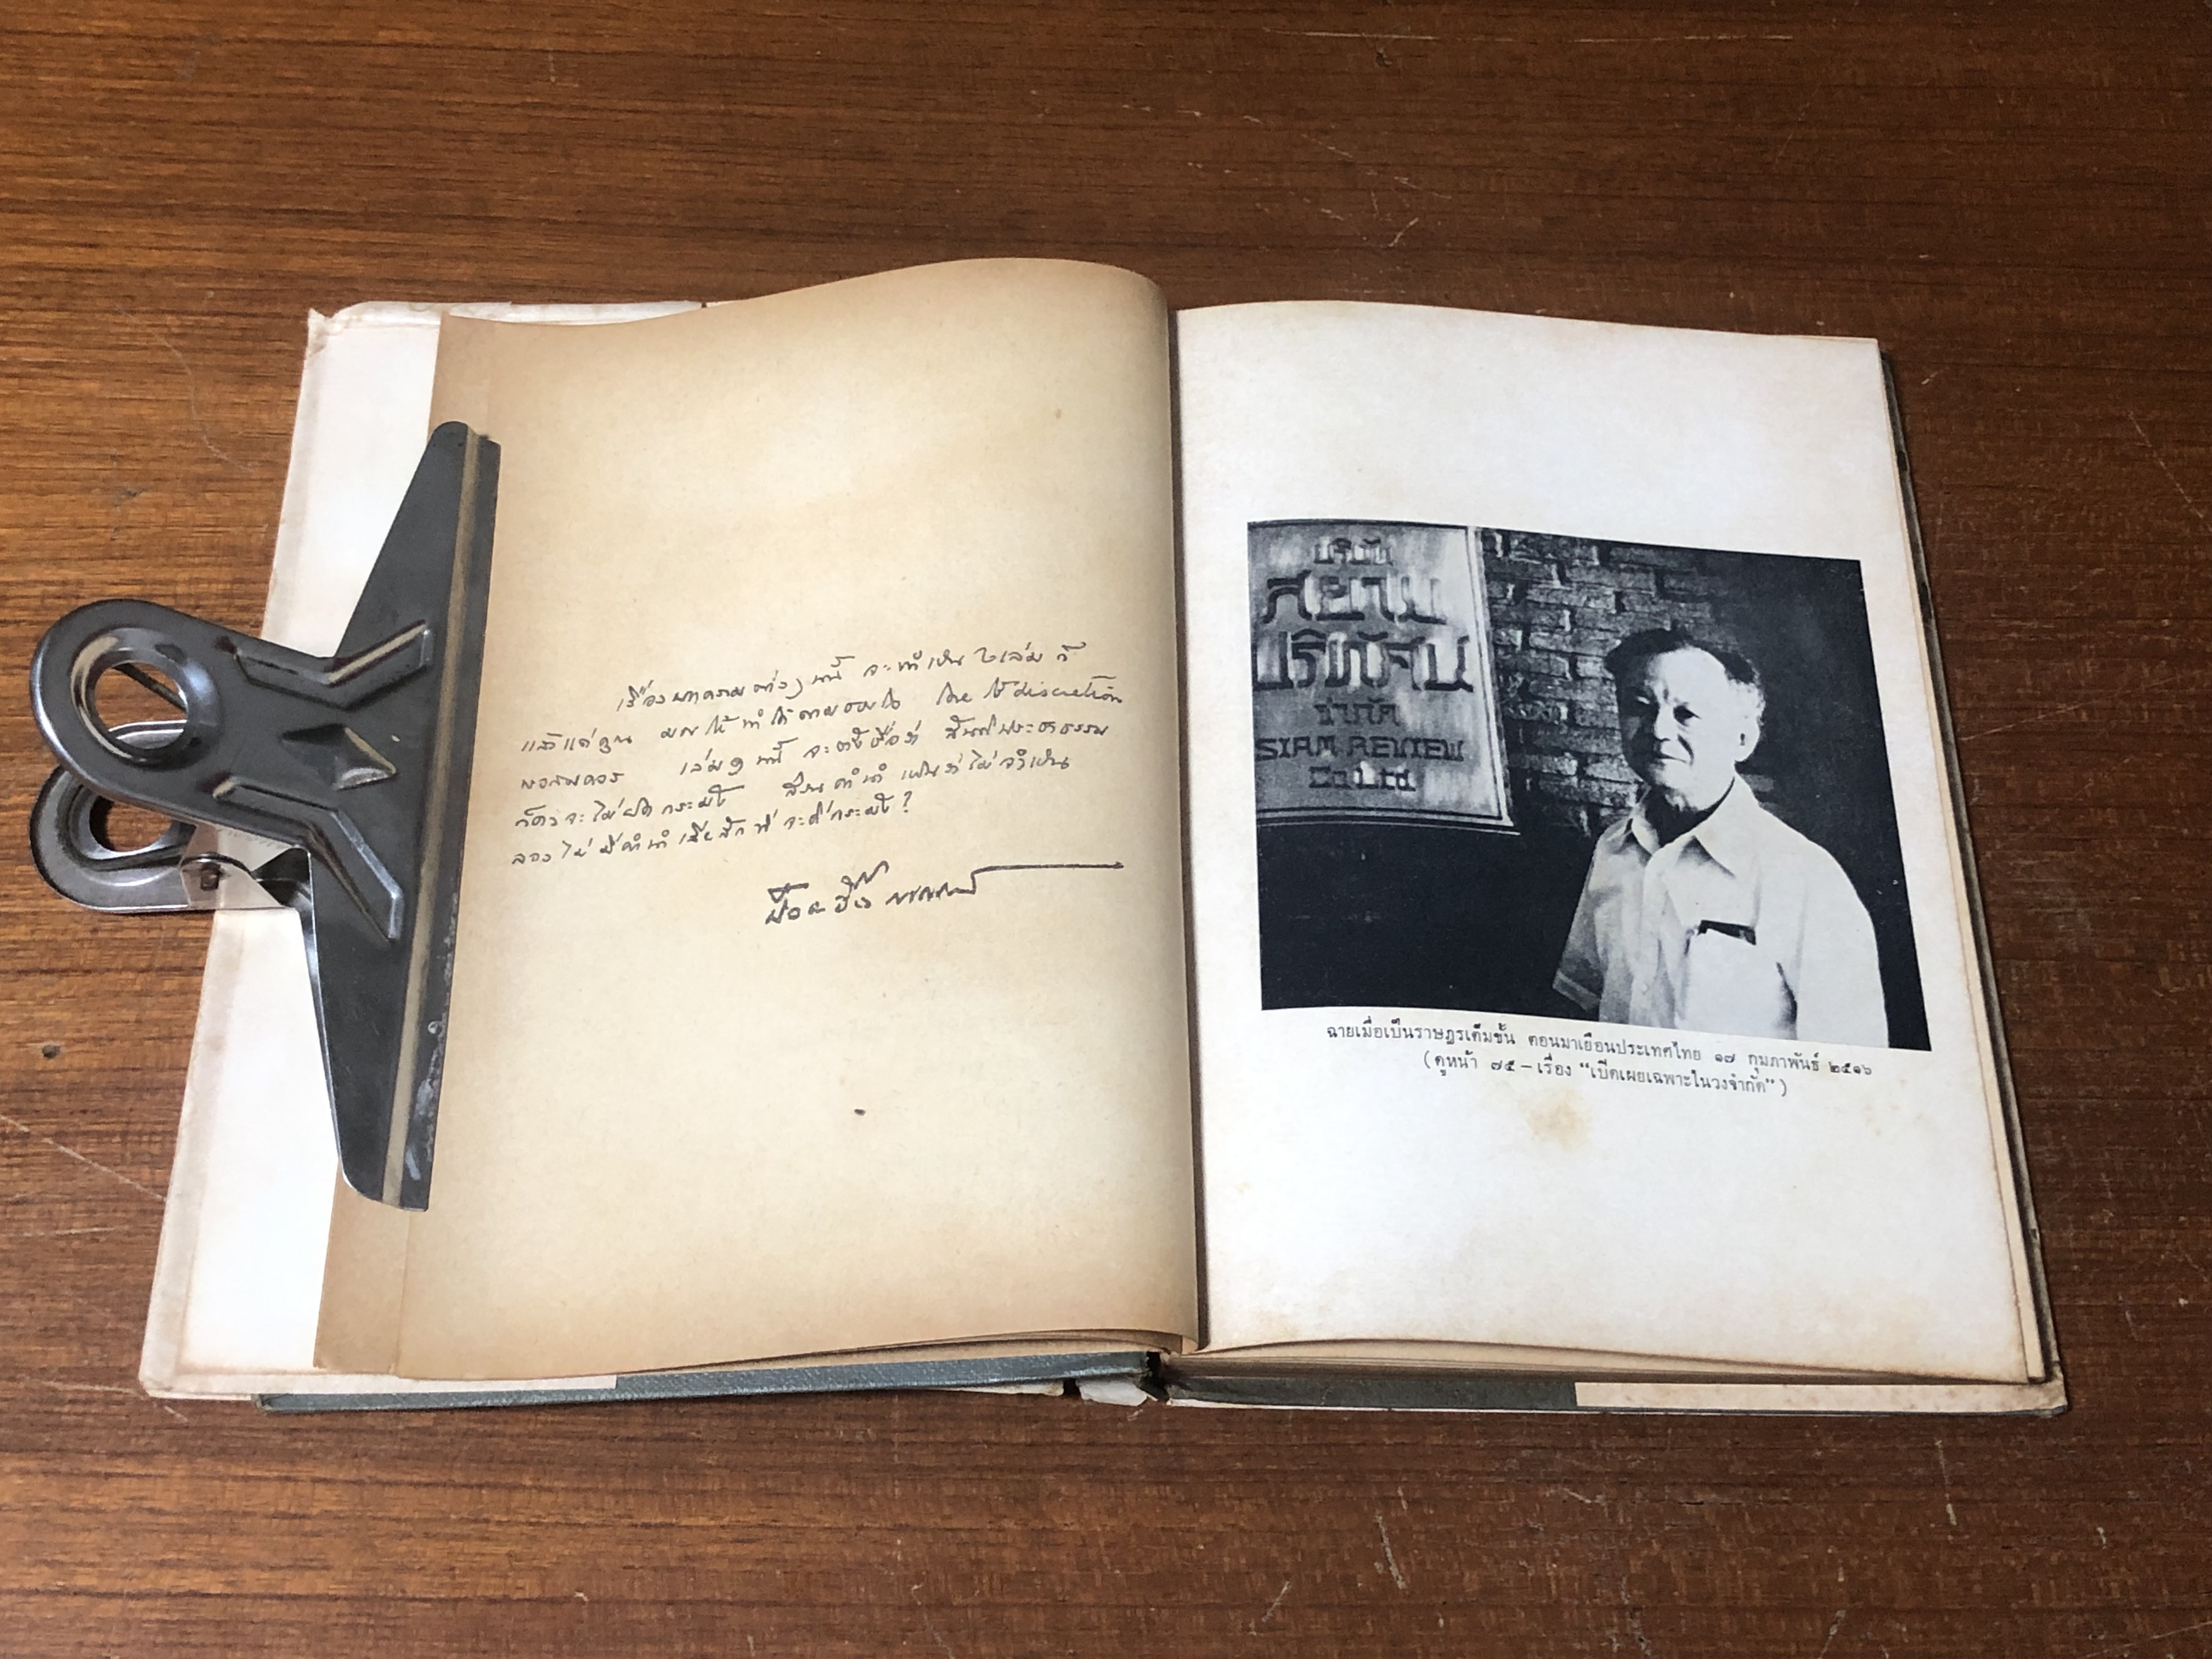 เรื่องบทความต่างๆ นี้ จะทำเป็น ๒ เล่ม ก็
แล้วแต่คุณ ผมให้ทำได้ตามชอบใจ โดยใช้ discretion
พอสมควร เล่ม ๑ นี้ จะตั้งชื่อว่า สันติประชาธรรม
ก็คงจะไม่ผิดกระมัง ส่วนคำนำ เห็นว่าไม่จำเป็น
ลองไม่มีคำนำเสียสักที จะดีกระมัง?
ป๋วย อึ๊งภากรณ์
บริษัท
สยาม
ปริทัศน์
จำกัด
SIAM REVIEW
Co.Ltd
ฉายเมื่อเป็นราษฎรเต็มขั้น ตอนมาเยือนประเทศไทย ๑๗ กุมภาพันธ์ ๒๕๑๖
(ดูหน้า ๗๕ – เรื่อง "เปิดเผยเฉพาะในวงจำกัด")